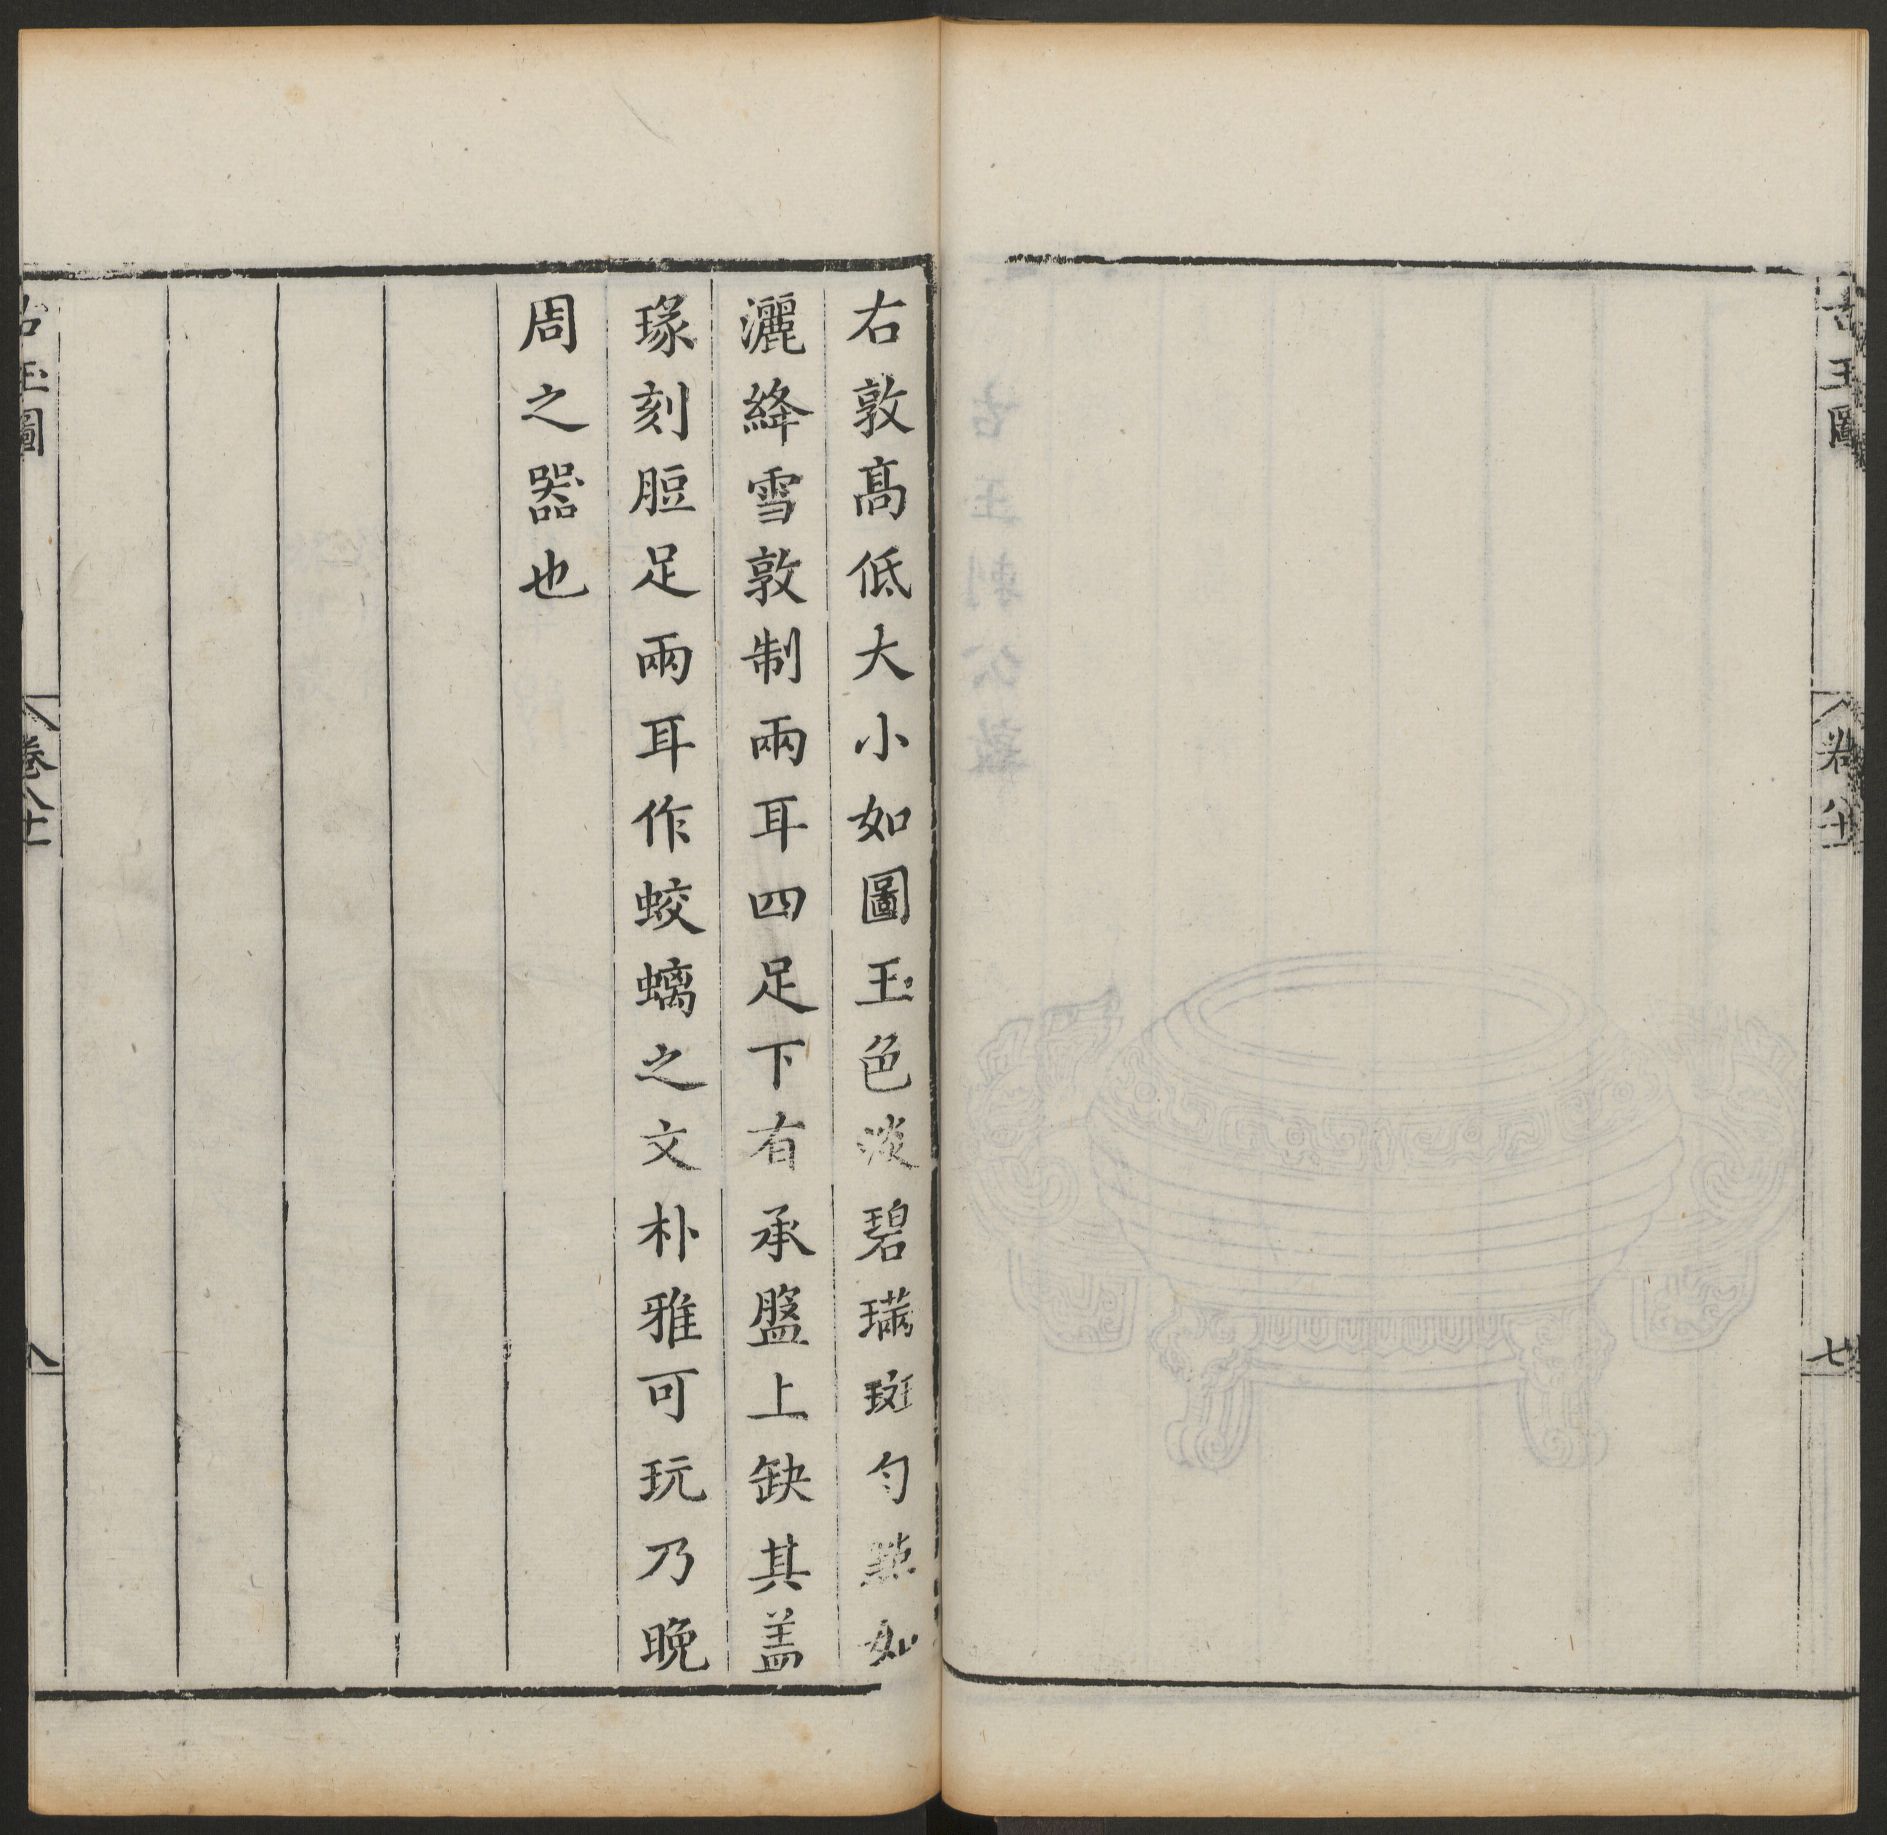 古玉圖 卷八十 七
右敦髙低大小如圖玉色淡碧璊斑勻點如
灑絳雪敦制兩耳四足下有承盤上缺其盖
瑑刻脰足兩耳作蛟螭之文朴雅可玩乃晚
周之器也
古玉圖 卷八十 八